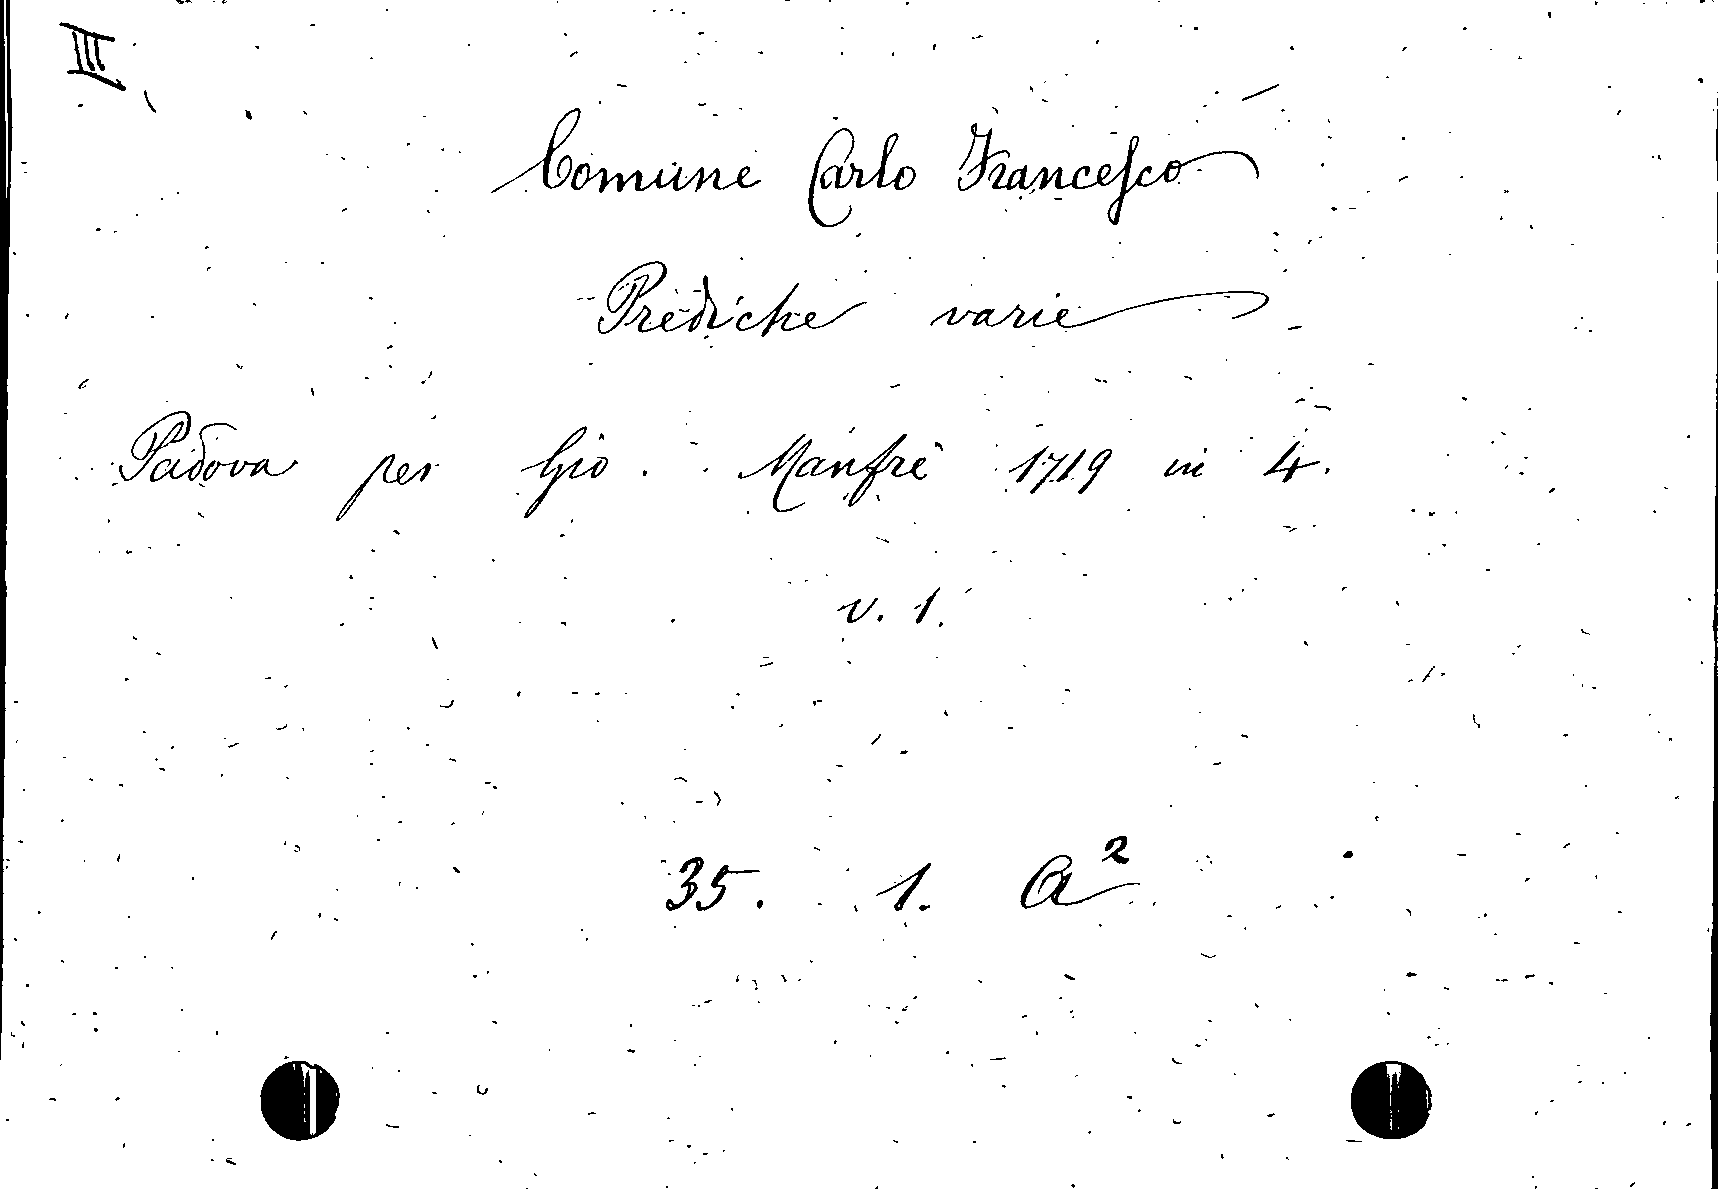 III
Comune Carlo Francesco
Prediche varie
Padova per Gio. Manfrè 1719 in 4.
v. 1.
35. 1. a²